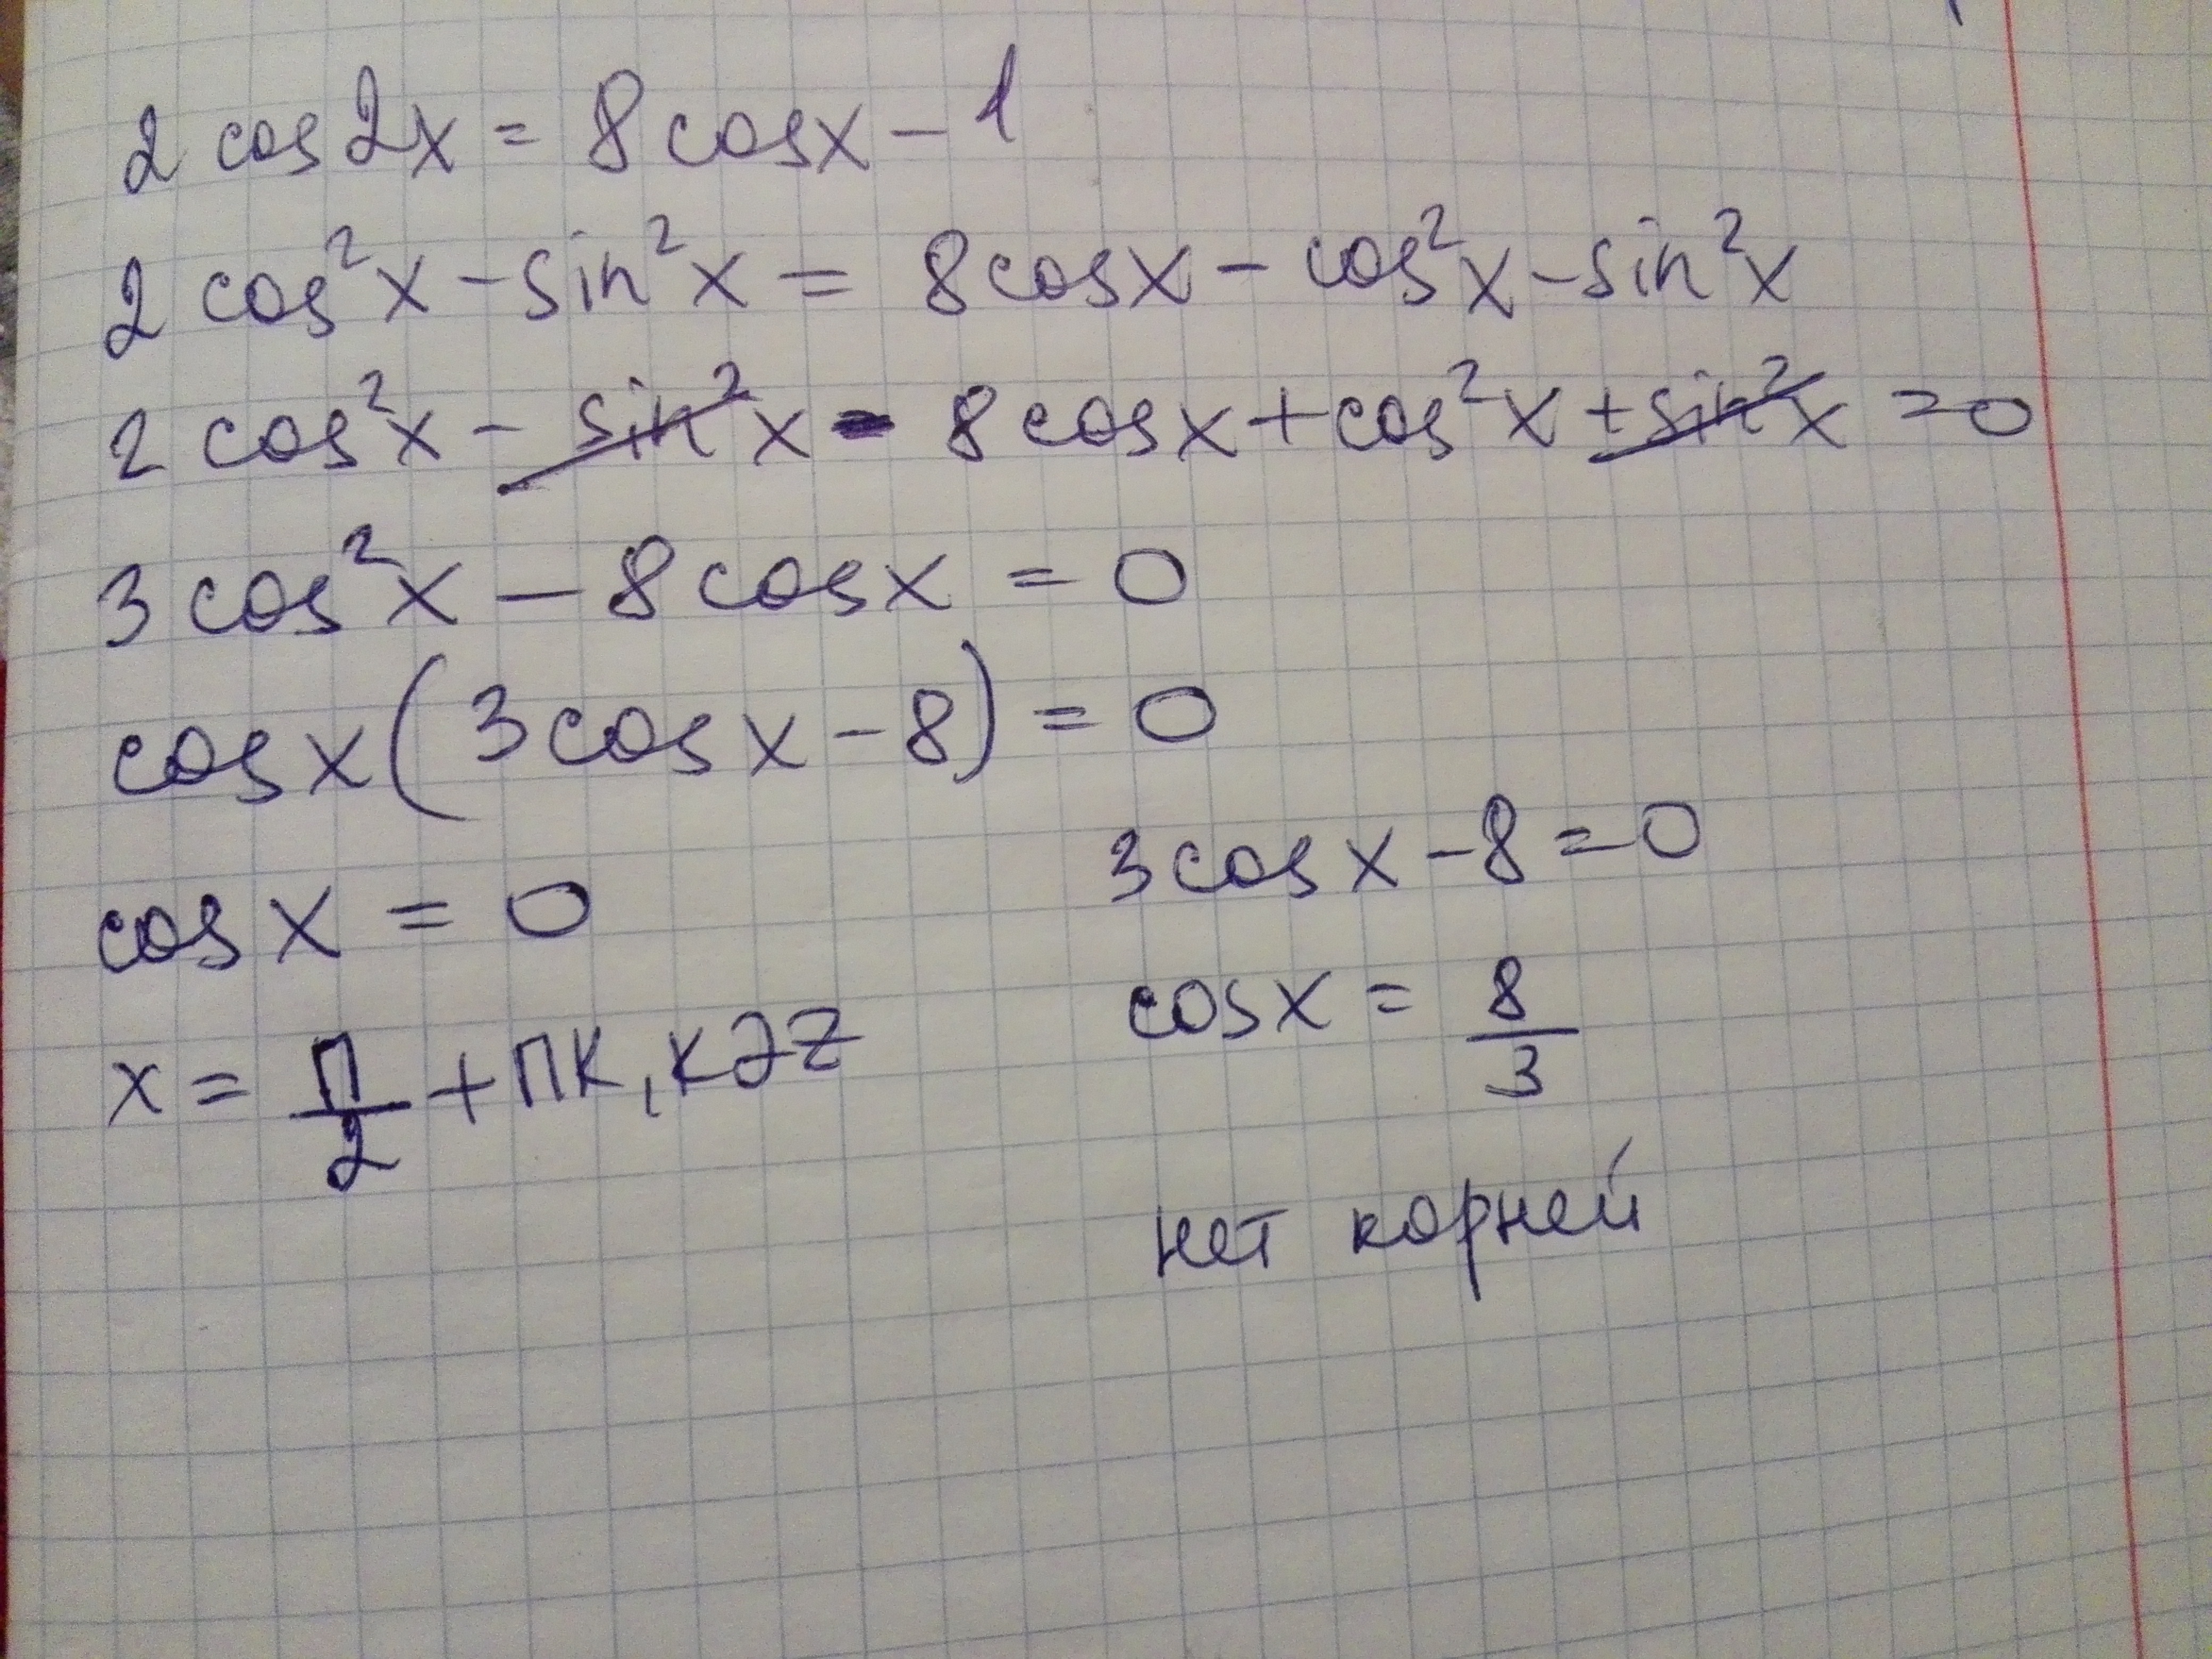 2 cos 2x = 8 cosx - 1
2 cos²x - sin²x = 8cosx - cos²x - sin²x
2 cos²x - sin²x - 8cosx + cos²x + sin²x = 0
3 cos²x - 8cosx = 0
cosx(3cosx - 8) = 0
cosx = 0
x = П/2 + ПК, К∂Z
3cosx - 8 = 0
cosx = 8/3
нет корней